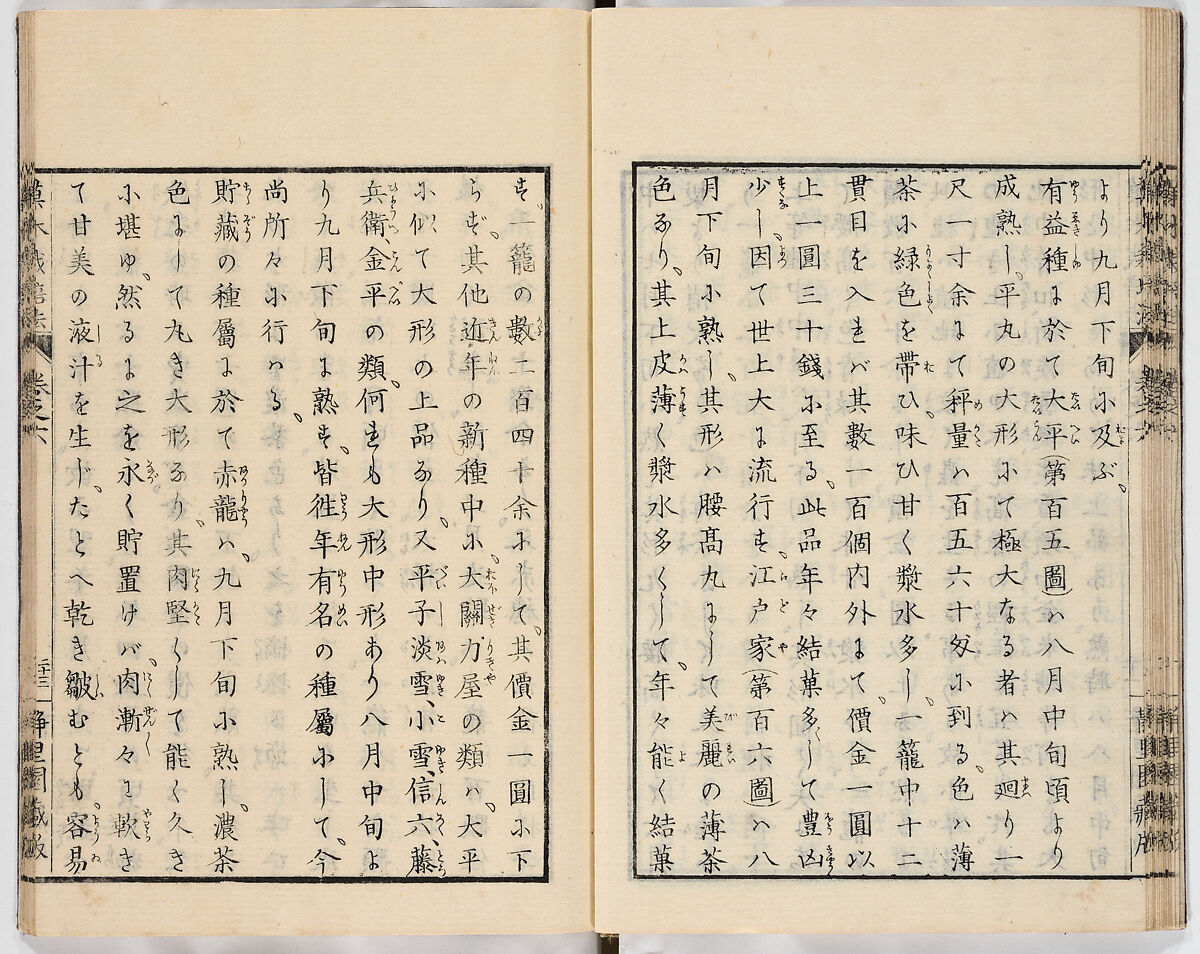 より九月下旬に及ぶ、
有益種に於て大平(第百五圖)ハ八月中旬頃より
成熟し、平丸の大形にて極大なる者ハ其廻り一
尺一寸余にて秤量ハ百五六十匁に到る、色ハ薄
茶に緑色を帯ひ、味ひ甘く漿水多し、一籠中十二
貫目を入るれバ其數一百個内外にて、價金一圓以
上一圓三十錢に至る、此品年々結菓多して豊凶
少し、因て世上大に流行す、江户家(第百六圖)ハ八
月下旬に熟し、其形ハ腰髙丸にして美麗の薄茶
色なり、其上皮薄く漿水多くして、年々能く結菓
す、一籠の數二百四十余にして、其價金一圓に下
らず、其他近年の新種中に、大關、力屋の類ハ、大平
に似て大形の上品なり、又平子、淡雪、小雪、信六、藤
兵衛、金平の類、何れも大形中形あり八月中旬よ
り九月下旬に熟す、皆徃年有名の種屬にして、今
尚所々に行ハる、
貯藏の種屬に於て赤龍ハ、九月下旬に熟し、濃茶
色にして丸き大形なり、其肉堅くして能く久き
に堪ゆ、然るに之を永く貯置けバ、肉漸々に軟き
て甘美の液汁を生じ、たとへ乾き皺むとも、容易
菓木栽培法 卷之六 二十三 静里園藏版